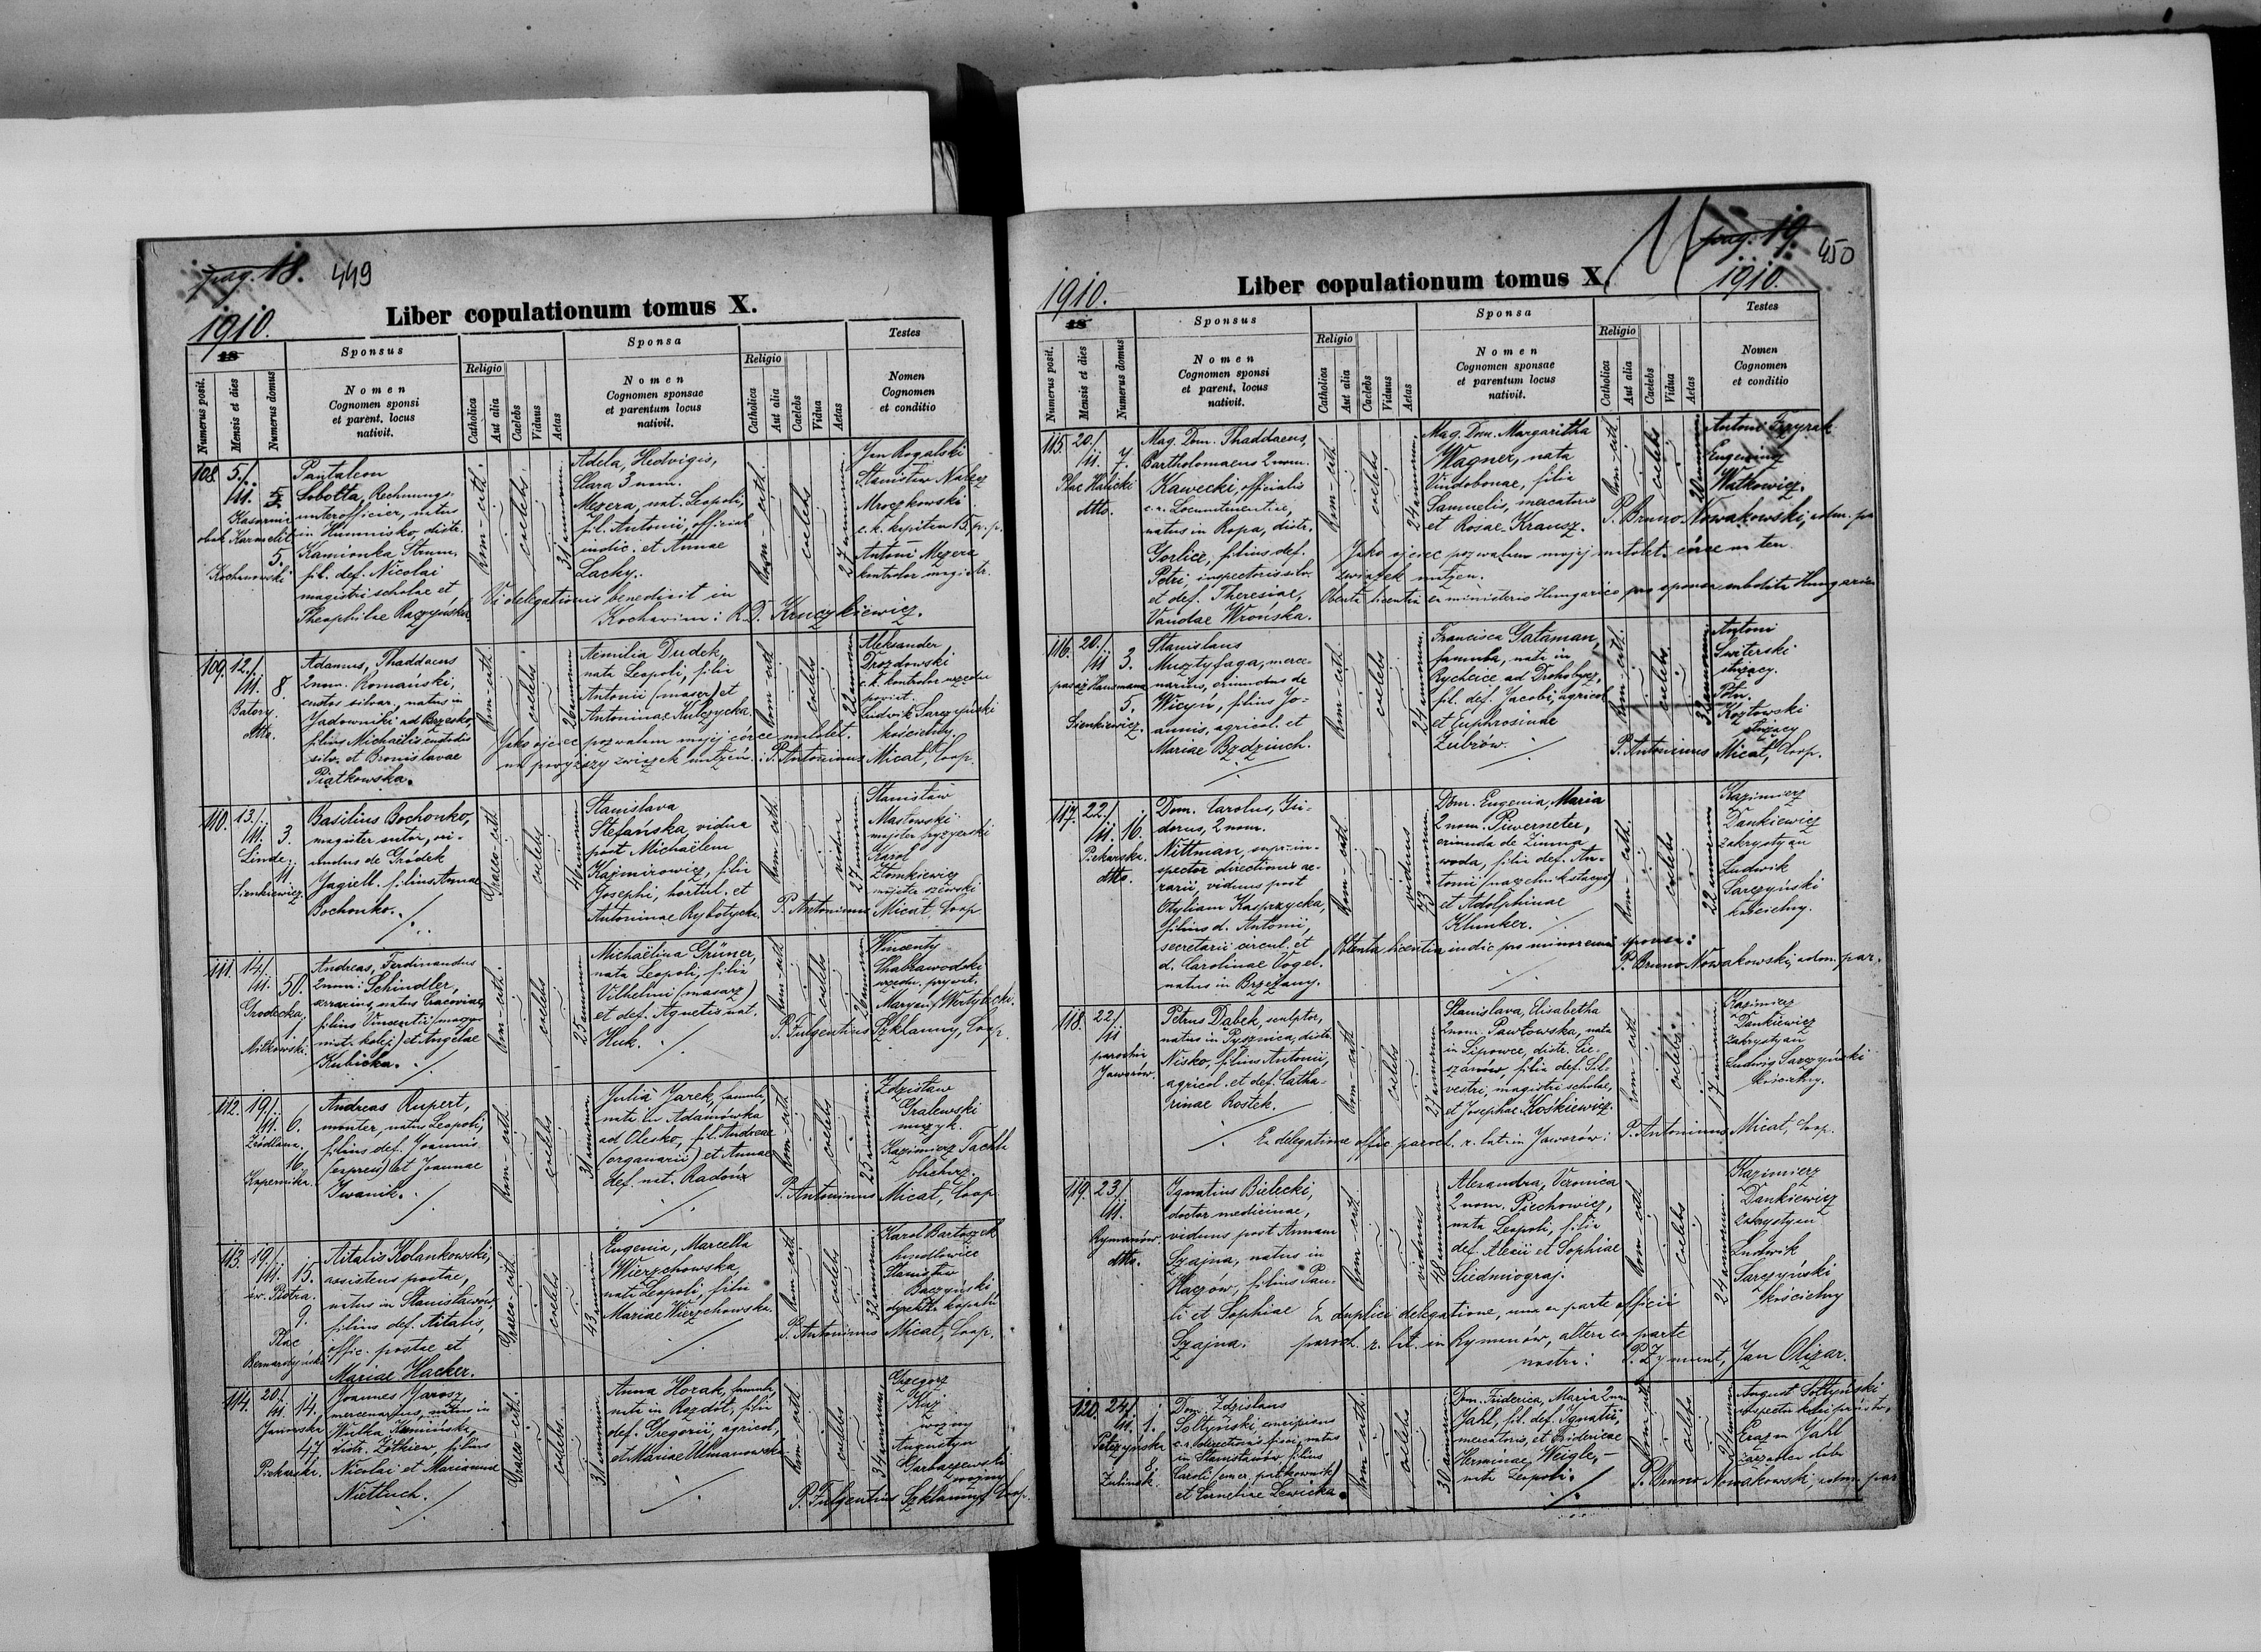 pag. 18. 449
1910.
Liber copulationum tomus X.
18
Sponsus
Sponsa
Testes
Numerus posit.
Mensis et dies
Numerus domus
Nomen
Cognomen sponsi
et parent. locus
nativit.
Religio
Catholica
Aut alia
Caelebs
Viduus
Aetas
Nomen
Cognomen sponsae
et parentum locus
nativit.
Religio
Catholica
Aut alia
Caelebs
Vidua
Aetas
Nomen
Cognomen
et conditio
108. 5./
Kasarnia
obok Karmelit.
5.
Kochanowski
Pantaleon
Sobotta, Rechnungs-
unterofficier, natus
in Humnisko, distr.
Kamionka Strum.
fil. def. Nicolai
magistri scholae et
Theophilae Raczyńska
Rom-cath.
caelebs
31 annorum
Adela, Hedvigis,
Clara 3 nom.
Mezera, nat. Leopoli,
fil. Antonii, official.
et Annae
Lachy.
Rom-cath.
caelebs
27 annorum
Jan Rogalski
Stanisław Nałęcz
Mroczkowski
c.k. kapitan 15. p. p.
Antoni Mezera
kontrolor magistr.
Vi delegationis benedixit in
Kochavina: R.D. Kruczkiewicz.
109. 12./
8.
Batory.
dtto.
Adamus, Thaddaeus
2 nom. Romański,
custos silvar., natus in
Jadowniki ad Brzesko,
filius Michaëlis custodis
silv. et Bronislavae
Piątkowska.
Rom-cath.
caelebs
26 annorum
Aemilia Dudek,
nata Leopoli, filia
Antonii (masarz) et
Antoninae Kulczycka.
Rom-cath.
caelebs
22 annorum
Aleksander
Drozdowski
c.k. kontrolor urzędu
powiat.
Ludwik Sarczyński
kościelny.
Jako ojciec pozwalam mojej córce małolet.
na powyższy związek małżeń.: P. Antoninus Micał, Coop.
110. 13./
3.
Linde.
11
Sienkiewicz.
Basilius Bochonko,
magister sutor, ori-
undus de Gródek
Jagiell. filius Annae
Bochonko.
Graeco-cath.
caelebs
46 annorum
Stanislava
Stefańska, vidua
post Michaëlem
Kazimirowicz, filia
Josephi, hortul. et
Antoninae Rybotycka.
Rom-cath.
vidua
27 annorum
Stanisław
Masłowski
majster fryzyerski
Karol
Słomkiewicz
majster szewski
P. Antoninus Micał, Coop.
111. 14./
50.
Grodecka
1.
Miłkowski.
Andreas, Ferdinandus
2 nom: Schindler,
serrarius, natus Cracoviae,
filius Vincentii (magazynist. kolej) et Angelae
Kubicka.
Rom-cath.
caelebs
25 annorum
Michaëlina Grüner,
nata Leopoli, filia
Vilhelmi (masarz)
et def. Agnetis nat.
Huk.
Rom-cath.
caelebs
26 annorum
Wincenty
Chabrawodski
urzędn. prywat.
Maryan Wertyłecki.
P. Fulgentius Szklanny, Coop.
112. 19./
6.
Źródlana.
16.
Kopernika.
Andreas Rupert,
monter, natus Leopoli,
filius def. Joannis
(expres) et Joannae
Iwanik.
Rom-cath.
caelebs
31 annorum
Julia Jarek, famula,
nata in Adamówka
ad Olesko, fil. Andreae
(organarii) et Annae
def. nat. Radoń
Rom-cath.
caelebs
25 annorum
Zdzisław
Gralewski
muzyk.
Kazimierz Tachla
blacharz.
P. Antoninus Micał, Coop.
113. 19./
15.
św. Piotra.
9.
Plac
Bernardyński
Vitalis Kolankowski,
assistens postae,
natus in Stanisławów,
filius def. Vitalis,
offic. postae et
Mariae Hacker.
Graeco-cath.
caelebs
43 annorum
Eugenia, Marcella
Wierzchowska,
nata Leopoli, filia
Mariae Wierzchowska.
Rom-cath.
caelebs
32 annorum
Karol Bartoszek
handlowiec
Stanisław
Baczyński
dyrektor kopalń
P. Antoninus Micał, Coop.
114. 20./
14.
Janowska
47.
Piekarski.
Joannes Jarosz,
mercenarius, natus in
Wulka Kunińska,
distr. Żółkiew, filius
Nicolai et Mariannae
Nietluch.
Graeco-cath.
caelebs
31 annorum
Anna Horak, famula,
nata in Rozdół, filia
def. Gregorii, agricol.,
et Mariae Ulmanowska
Rom-cath.
caelebs
34 annorum
Grzegorz
Kuż
woźny
Augustyn
Garbaczewski
woźny
P. Fulgentius Szklanny, Coop.
pag. 19. 450
1910.
Liber copulationum tomus X.
1910.
18
Sponsus
Sponsa
Testes
Numerus posit.
Mensis et dies
Numerus domus
Nomen
Cognomen sponsi
et parent. locus
nativit.
Religio
Catholica
Aut alia
Caelebs
Viduus
Aetas
Nomen
Cognomen sponsae
et parentum locus
nativit.
Religio
Catholica
Aut alia
Caelebs
Vidua
Aetas
Nomen
Cognomen
et conditio
115. 20./
7.
Plac Halicki
dtto.
Mag. Dom. Thaddaeus,
Bartholomaeus 2 nom.
Kawecki, officialis
c.r. Locumtenentiae,
natus in Ropa, distr.
Gorlice, filius def.
Petri, inspectoris silv.
et def. Theresiae,
Vandae Wrońska.
Rom-cath.
caelebs
24 annorum
Mag. Dom. Margaritha
Wagner, nata
Vindobonae, filia
Samuelis, mercatoris
et Rosae Krausz.
Rom-cath.
caelebs
20 annorum
Antoni Fizyrak
Eugeniusz
Watkowicz.
P. Bruno Nowakowski, adm. pa
Jako ojciec pozwalam mojej małolet. córce na ten
związek małżen.
Obtenta licentia ex ministerio Hungarico pro sponsa subdita Hungariae
116. 20./
3.
pasaż Hausmana
5.
Sienkiewicz.
Stanislaus
Musztyfaga, merce-
narius, oriundus de
Wicyń, filius Jo-
annis, agricol. et
Mariae Bzdziuch.
Rom-cath.
caelebs
24 annorum
Francisca Gataman,
famula, nata in
Rychcice ad Drohobycz,
fil. def. Jacobi, agricol.
et Euphrosinae
Zubrów.
Rom-cath.
caelebs
32 annorum
Antoni
Switerski
służący.
Piotr
Kozłowski
służący
P. Antoninus Micał, Coop.
117. 22./
16.
Piekarska.
dtto.
Dom. Carolus, Isi-
dorus, 2 nom.
Nittman, supr. in-
spector directionis ae-
rarii, viduus post
Otyliam Kasprzycka,
filius d. Antonii,
secretarii circul. et
d. Carolinae Vogel.
natus in Brzeżany.
Rom-cath.
viduus
73 annorum
Dom. Eugenia, Maria
2 nom. Piwerneter,
oriunda de Zimna
woda, filia def. An-
tonii (naczelnik stacyi)
et Adolphinae
Klunker.
Rom-cath.
caelebs
22 annorum
Kazimierz
Dankiewicz
zakrystyan
Ludwik
Sarczyński
kościelny.
Obtenta licentia iudic. pro minorenni sponsa:
P. Bruno Nowakowski, adm. par.
118. 22./
parochia
Jaworów.
Petrus Dąbek, sculptor,
natus in Pysznica, distr.
Nisko, filius Antonii,
agricol. et def. Catha-
rinae Rostek.
Rom-cath.
caelebs
27 annorum
Stanislava, Elisabetha
2 nom. Pawłowska, nata
in Lipowce, distr. Cie-
szanów, filia def. Sil-
vestri, magistri scholae,
et Josephae Kośkiewicz.
Rom-cath.
caelebs
17 annorum
Kazimierz
Dankiewicz
zakrystyan
Ludwig Sarczyński
kościelny.
Ex delegatione offic. paroch. r. lat. in Jaworów: P. Antoninus Micał, Coop.
119. 23./
Rymanów.
dtto.
Ignatius Bielecki,
doctor medicinae,
viduus post Annam
Szajna, natus in
Haczów, filius Pau-
li et Sophiae
Szajna.
Rom-cath.
viduus
48 annorum
Alexandra, Veronica
2 nom. Piechowicz,
nata Leopoli, filia
def. Alexii et Sophiae
Siedmiograj.
Rom-cath.
caelebs
24 annorum
Kazimierz
Dankiewicz
zakrystyan
Ludwik
Sarczyński
kościelny
Ex duplici delegatione, una ex parte officii
paroch. r. lat. in Rymanów, altera ex parte
nostri: P. Zygmunt, Jan Olizar.
120. 24./
1.
Pełczyńska
8.
Zulinski.
Dom. Zdzislaus
Sołtyński, concipiens
c.r. directionis finan., natus
in Stanisławów, filius
Caroli (emer. pułkownik)
et Corneliae Lewicka.
Rom-cath.
caelebs
30 annorum
Dom. Friderica, Maria 2 nom
Jahl, fil. def. Ignatii,
mercatoris, et Fridericae
Herminae Weigle,
nata Leopoli.
Rom-cath.
caelebs
21 annorum
August Sołtyński
inspektor kolei państw.,
Erazm Jahl
zarządca dóbr
P. Bruno Nowakowski, adm. par